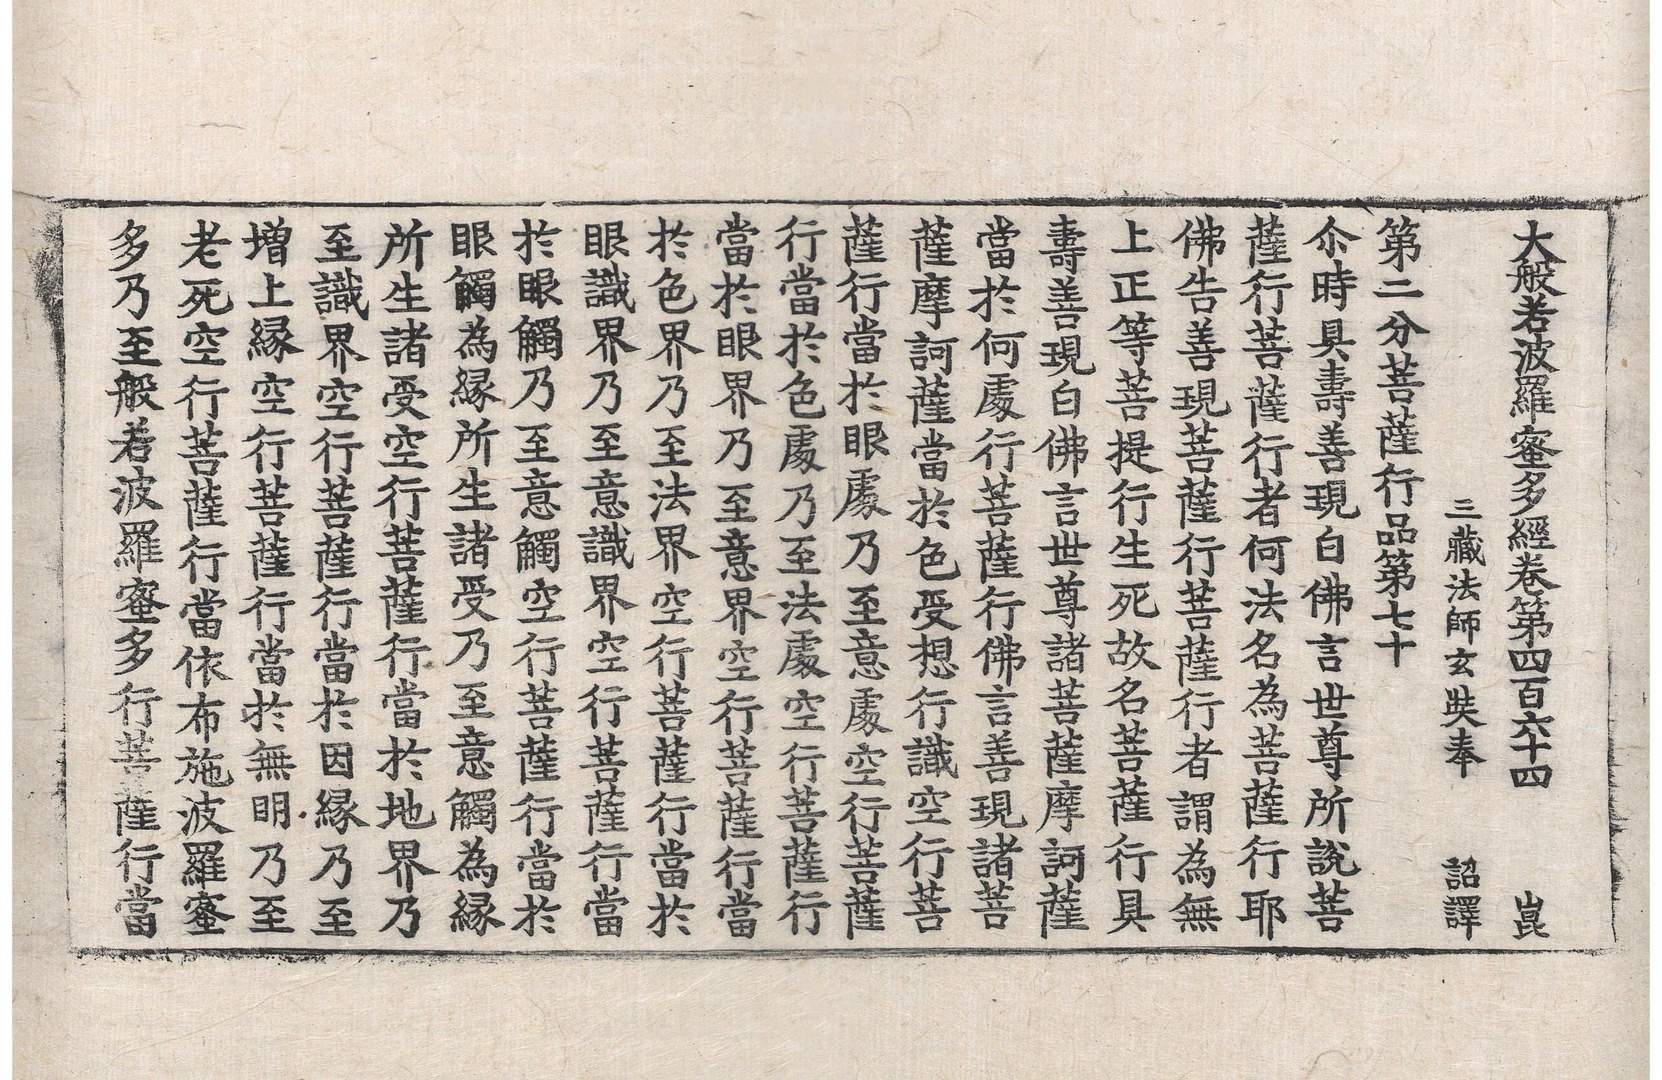 大般若波羅蜜多經卷第四百六十四 崑
三藏法師玄奘奉 詔譯
第二分菩薩行品第七十
尒時具壽善現白佛言世尊所說菩
薩行菩薩行者何法名為菩薩行耶
佛告善現菩薩行菩薩行者謂為無
上正等菩提行生死故名菩薩行具
壽善現白佛言世尊諸菩薩摩訶薩
當於何處行菩薩行佛言善現諸菩
薩摩訶薩當於色受想行識空行菩
薩行當於眼處乃至意處空行菩薩
行當於色處乃至法處空行菩薩行
當於眼界乃至意界空行菩薩行當
於色界乃至法界空行菩薩行當於
眼識界乃至意識界空行菩薩行當
於眼觸乃至意觸空行菩薩行當於
眼觸為緣所生諸受乃至意觸為緣
所生諸受空行菩薩行當於地界乃
至識界空行菩薩行當於因緣乃至
增上緣空行菩薩行當於無明乃至
老死空行菩薩行當依布施波羅蜜
多乃至般若波羅蜜多行菩薩行當